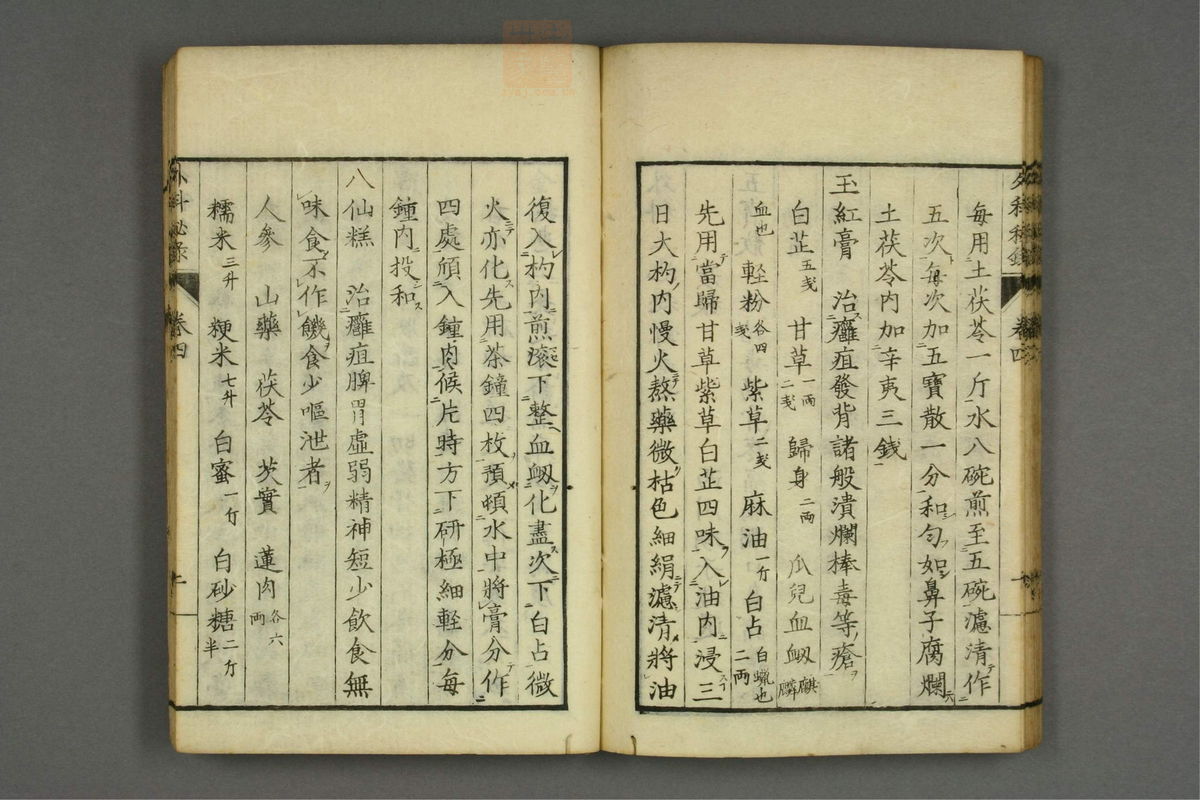 每用土茯苓一斤水八碗煎至五碗濾清作
五次每次加五寶散一分和匀如鼻子腐爛
土茯苓内加辛夷三銭
玉紅膏　治癰疽發背諸般潰爛棒毒等瘡
白芷五戔　甘草一兩二戔　歸身二兩　瓜兒血衂麒麟
血也　軽粉各四戔　紫草二戔　麻油一斤　白占白蝋也二兩
先用當歸甘草紫草白芷四味入油内浸三
日大杓内慢火熬藥微枯色細絹濾清將油
復入杓内煎滚下整血衂化盡次下白占微
火亦化先用茶鐘四枚預頓水中將膏分作
四處頃入鐘内候片時方下研極細軽分每
鐘内投和
八仙糕　治癰疽脾胃虛弱精神短少飲食無
味食不作饑食少嘔泄者
人參　山藥　茯苓　芡實　蓮肉各六兩
糯米三升　粳米七升　白蜜一斤　白砂糖二斤半
外科秘録　卷四
外科秘録　卷四